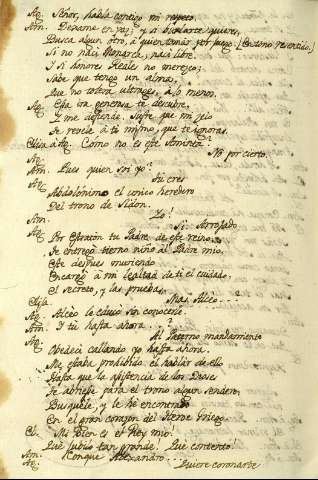 Ag. Señor, habla contigo mi respeto
Am. Dexame en paz; y si burlarte quieres,
Busca algun otro, à quien tomàr por juego. (En tono resentido)
Si no nací Monarca, nací libre.
Y si honores Reales no merezco;
Sabe que tengo un alma,
Que no sufra ultrages, à lo menos.
Ag. Esa ira generosa te descubre,
Y me defiende. Sufre que mi zelo
Te revele à ti mismo, que te ignoras.
Elisa à Ag. Como, no es este Aminta?
Ag. No por cierto.
Am. Pues quien soi yo?
Ag. Tu eres
Abdolonimo el unico heredero
Del trono de Sidon.
Am. Yo!
Ag. Si. Arrojado
Por Estratòn tu Padre de este reino
Te entregó tierno niño al Padre mio.
Este despues muriendo
Encargó à mi lealtad de ti el cuidado,
El secreto, y las pruebas.
Elisa. Mas Alceo...
Ag. Alcèo te educò sin conocerte.
Am. Y tu hasta ahora...
Ag. Al Paterno mandamiento
Obedecí callando yo hasta ahora.
Me estaba prohibido el hablar de ello
Hasta que la asistencia de los Dioses
Te abriese para el trono algun sendero.
Busquele, y le he encontrado
En el gran corazon del Heroe Griego.
El. Mi bien es el Rey mio!
Que subito tan grande! Que contento!
Am. Conque Alexandro...
Ag. Quiere coronarte